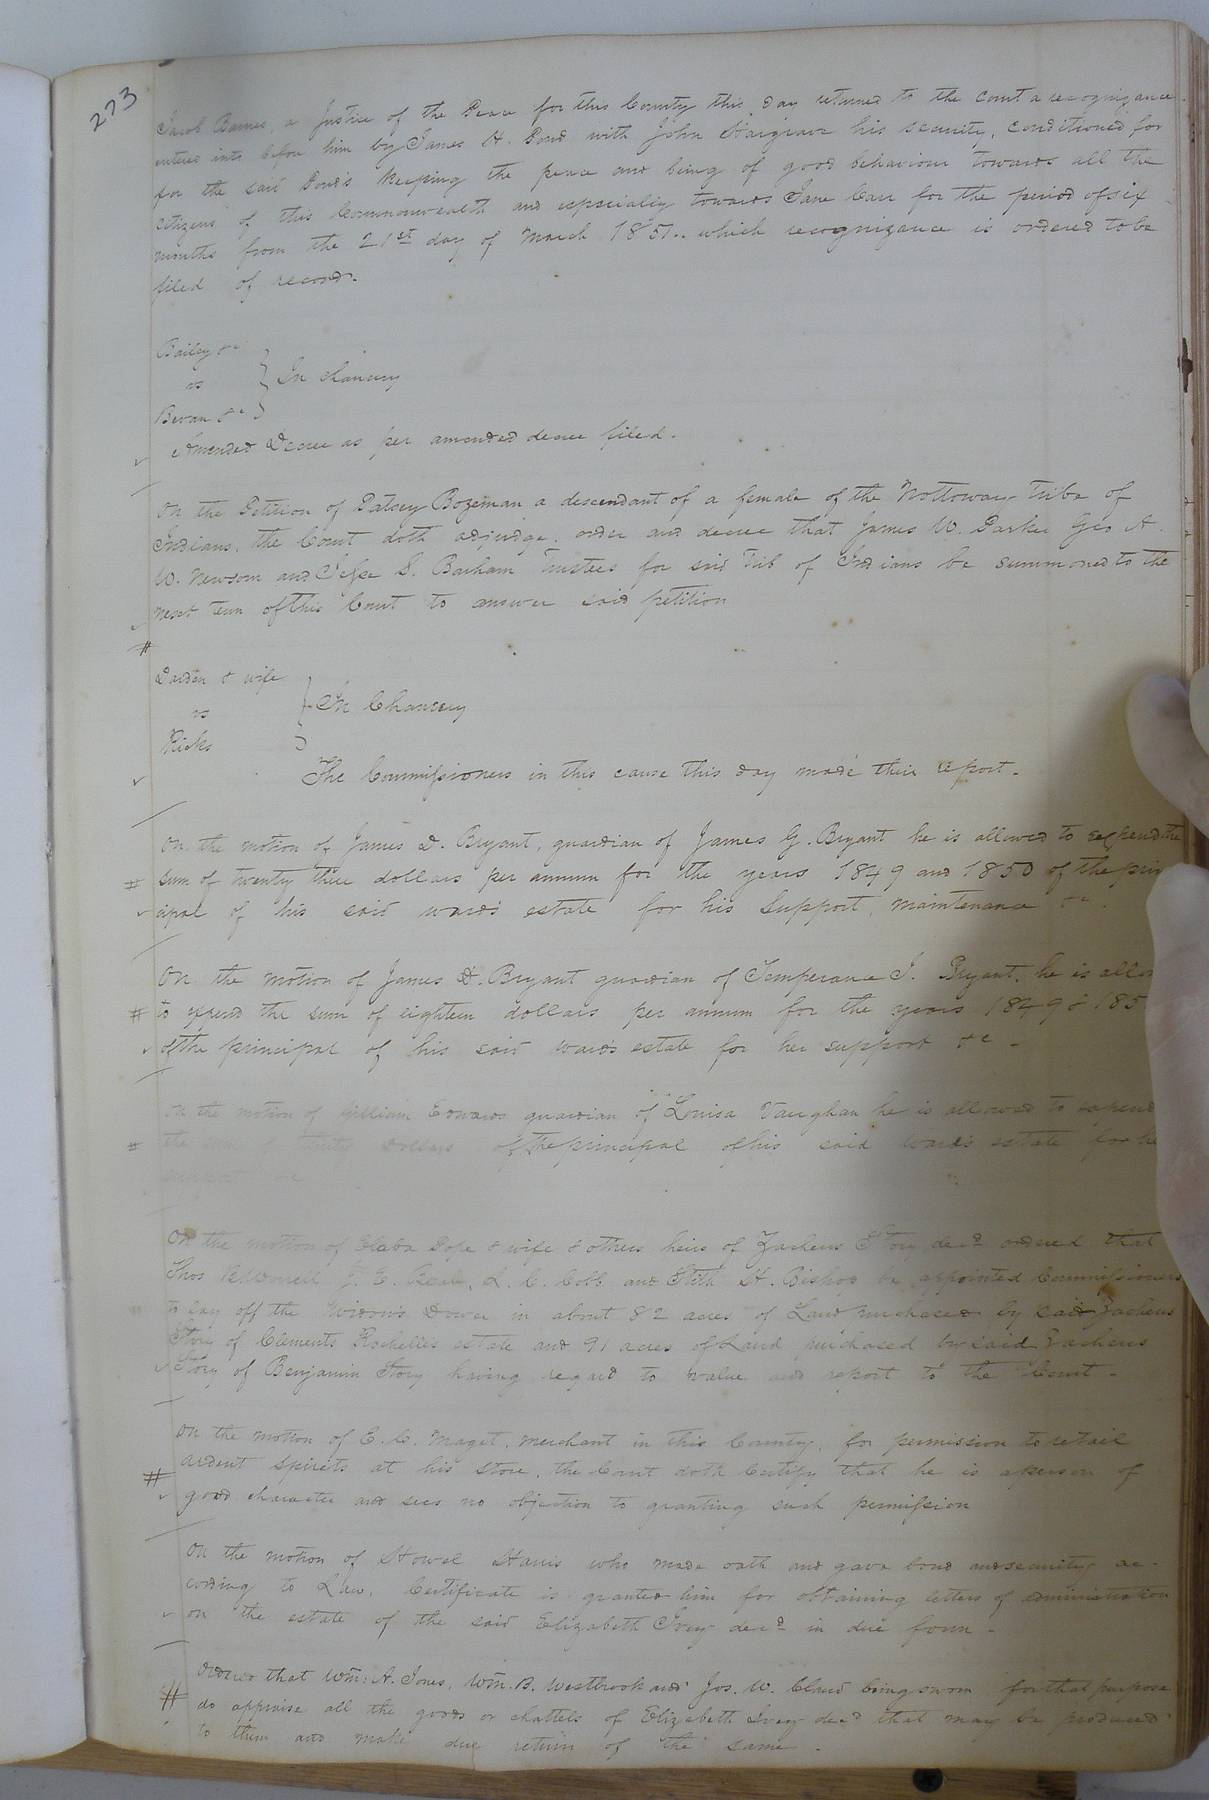 273
Jacob Barnes, a Justice of the Peace for this County this day returned to the Court a recognizance
entered into before him by James H. Pond with John Hargrave his security, conditioned for
for the said Pond's keeping the peace and being of good behaviour towards all the
citizens of this Commonwealth and especially towards Jane Carr for the period of six
months from the 21st day of March 1851.. which recognizance is ordered to be
filed of record.
Bailey &c
vs In chancery
Bevan &c
Amended Decree as per amended decree filed.
On the Petition of Patsey Bozeman a descendant of a female of the Nottoway Tribe of
Indians, the Court doth adjudge, order and decree that James W. Parker Geo A.
W. Newsom and Jesse S. Barham Trustees for said Trib of Indians be summoned to the
next term of this Court to answer said petition
#
Darden & wife
vs In Chancery
Ricks
The Commissioners in this cause this day made their report.
On the motion of James D. Bryant, guardian of James G. Bryant he is allowed to expend the
# sum of twenty three dollars per annum for the years 1849 and 1850 of the prin
cipal of his said ward's estate for his support, maintenance &c.
On the motion of James D. Bryant guardian of Temperance J. Bryant, he is allow
# to expend the sum of eighteen dollars per annum for the years 1849 & 185
of the principal of his said ward's estate for her support &c -
On the motion of William Edwards guardian of Louisa Vaughan he is allowed to expend
# the sum of thirty Dollars of the principal of his said ward's estate for he
support &c
On the motion of Pope & wife & others heirs of Zacheus Story decd ordered that
Thos J. E. Beale, L. C. Cobb and Stith H. Bishop be appointed Commissioners
to lay off the Widow's Dower in about 82 acres of Land purchased by said Zacheus
Story of Clements Rochelle's estate and 91 acres of Land purchased by said Zacheus
Story of Benjamin Story having regard to value and report to the Court -
On the motion of E. C. Maget, merchant in this County, for permission to retail
# ardent spirits at his store, the Court doth Certify that he is a person of
good character and sees no objection to granting such permission
On the motion of Howel Harris who made oath and gave bond and security ac-
cording to Law, Certificate is granted him for obtaining letters of administration
on the estate of the said Elizabeth Ivey decd in due form -
Ordered that Wm. A. Jones, Wm. B. Westbrook and Jos. W. Claud being sworn for that purpose
# do appraise all the goods or chattels of Elizabeth Ivey decd that may be produced
to them and make due return of the same -